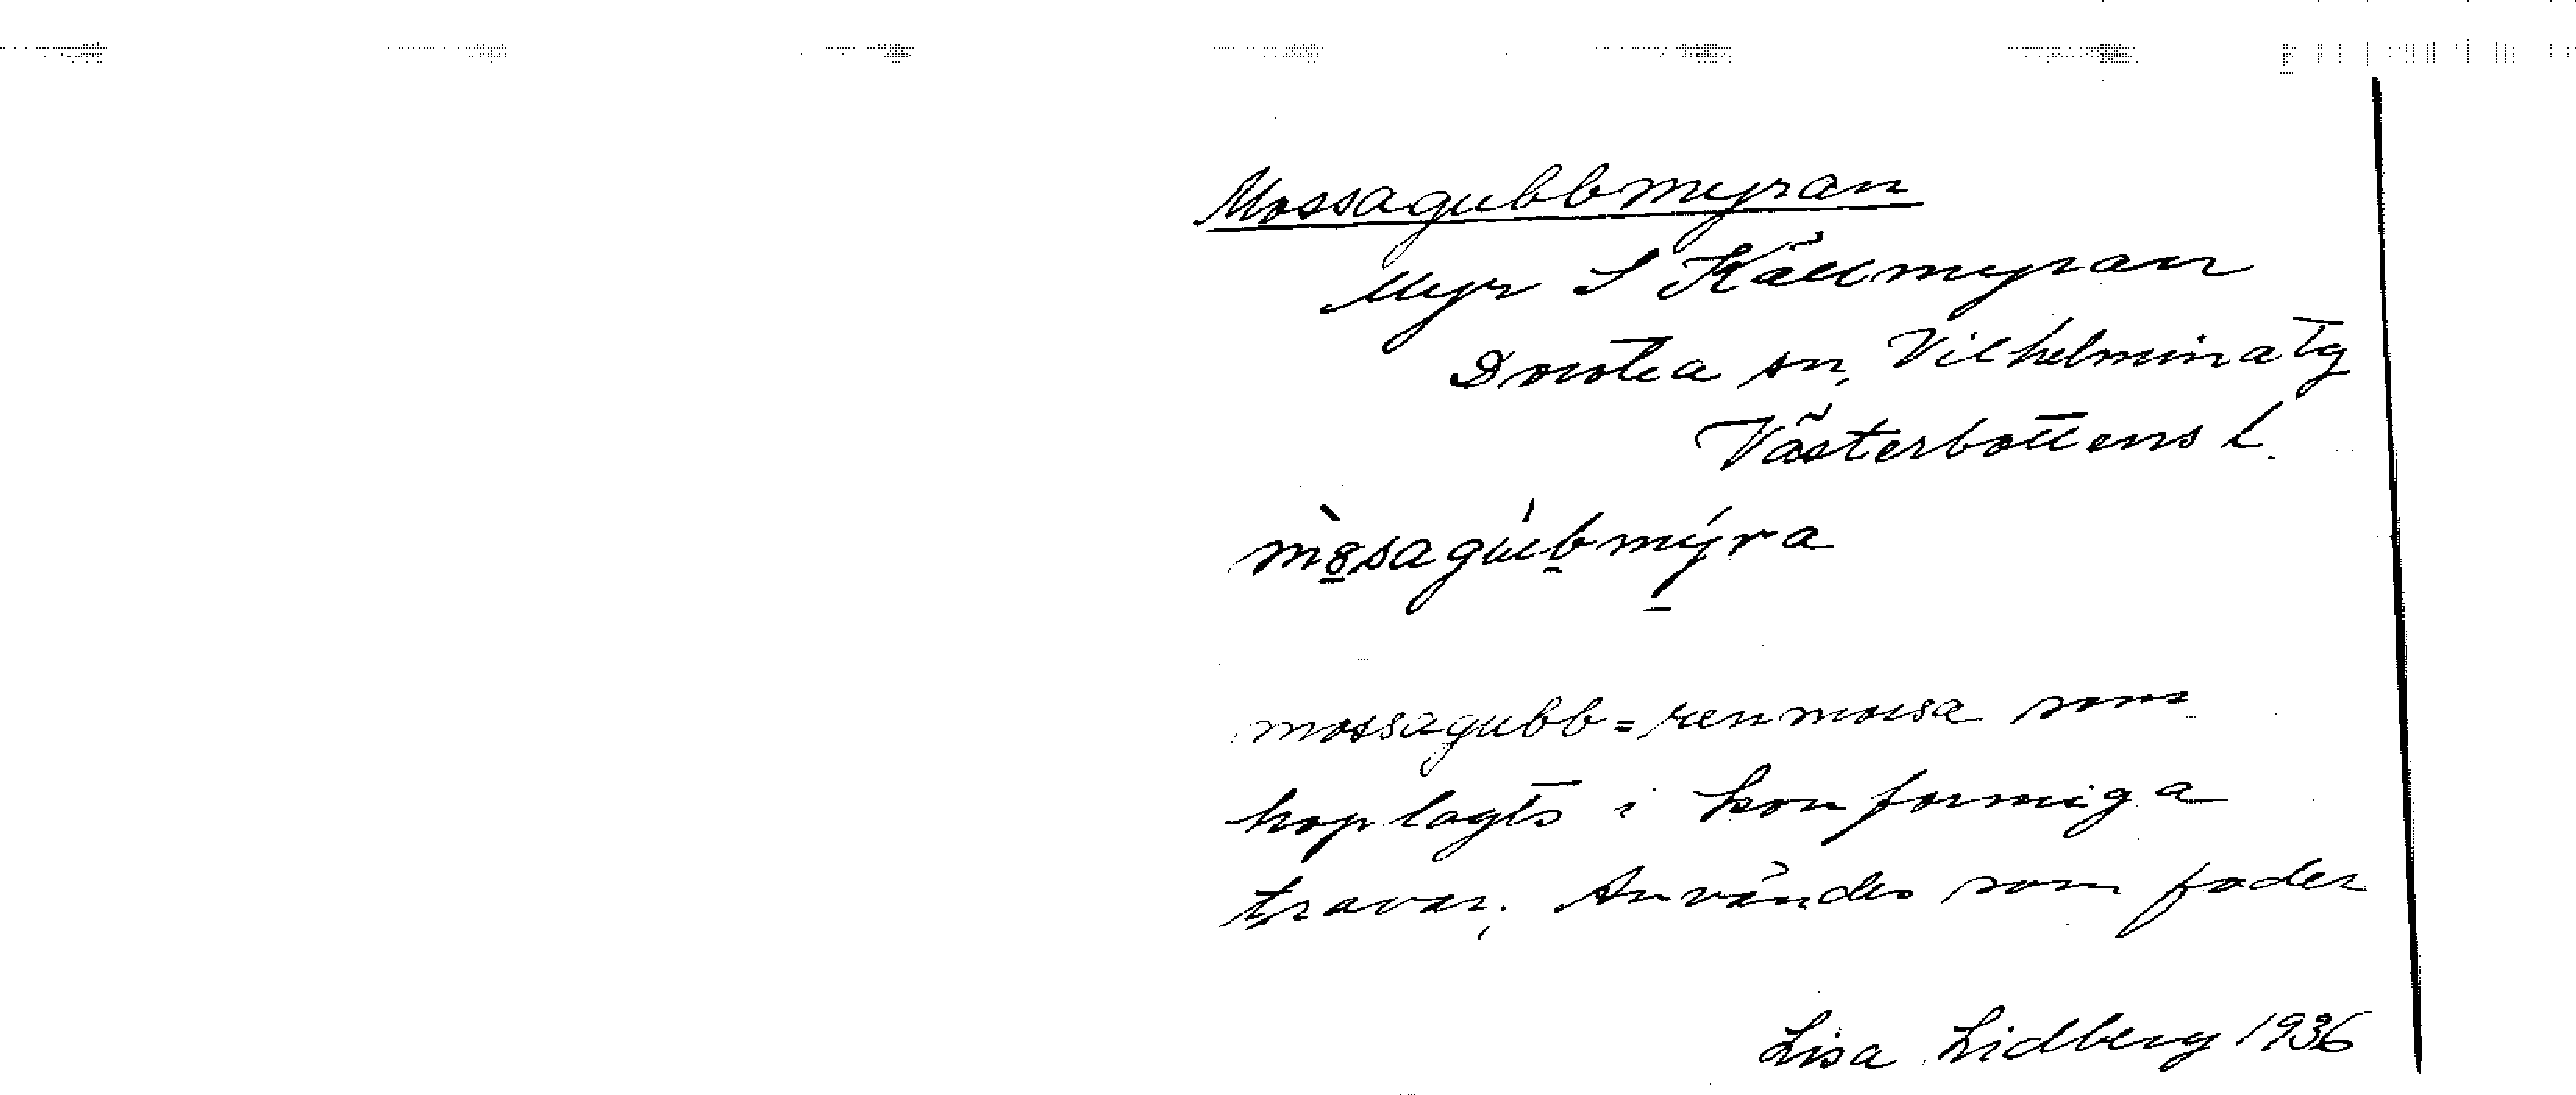 Mossagubbmyran
Myr S Källmyran
Dorotea sn, Vilhelmina tg
Västerbottens L.
mossagubb = renmossa som
hoplagts i konformiga
travar. Användes som foder
Lisa Lidberg 1936